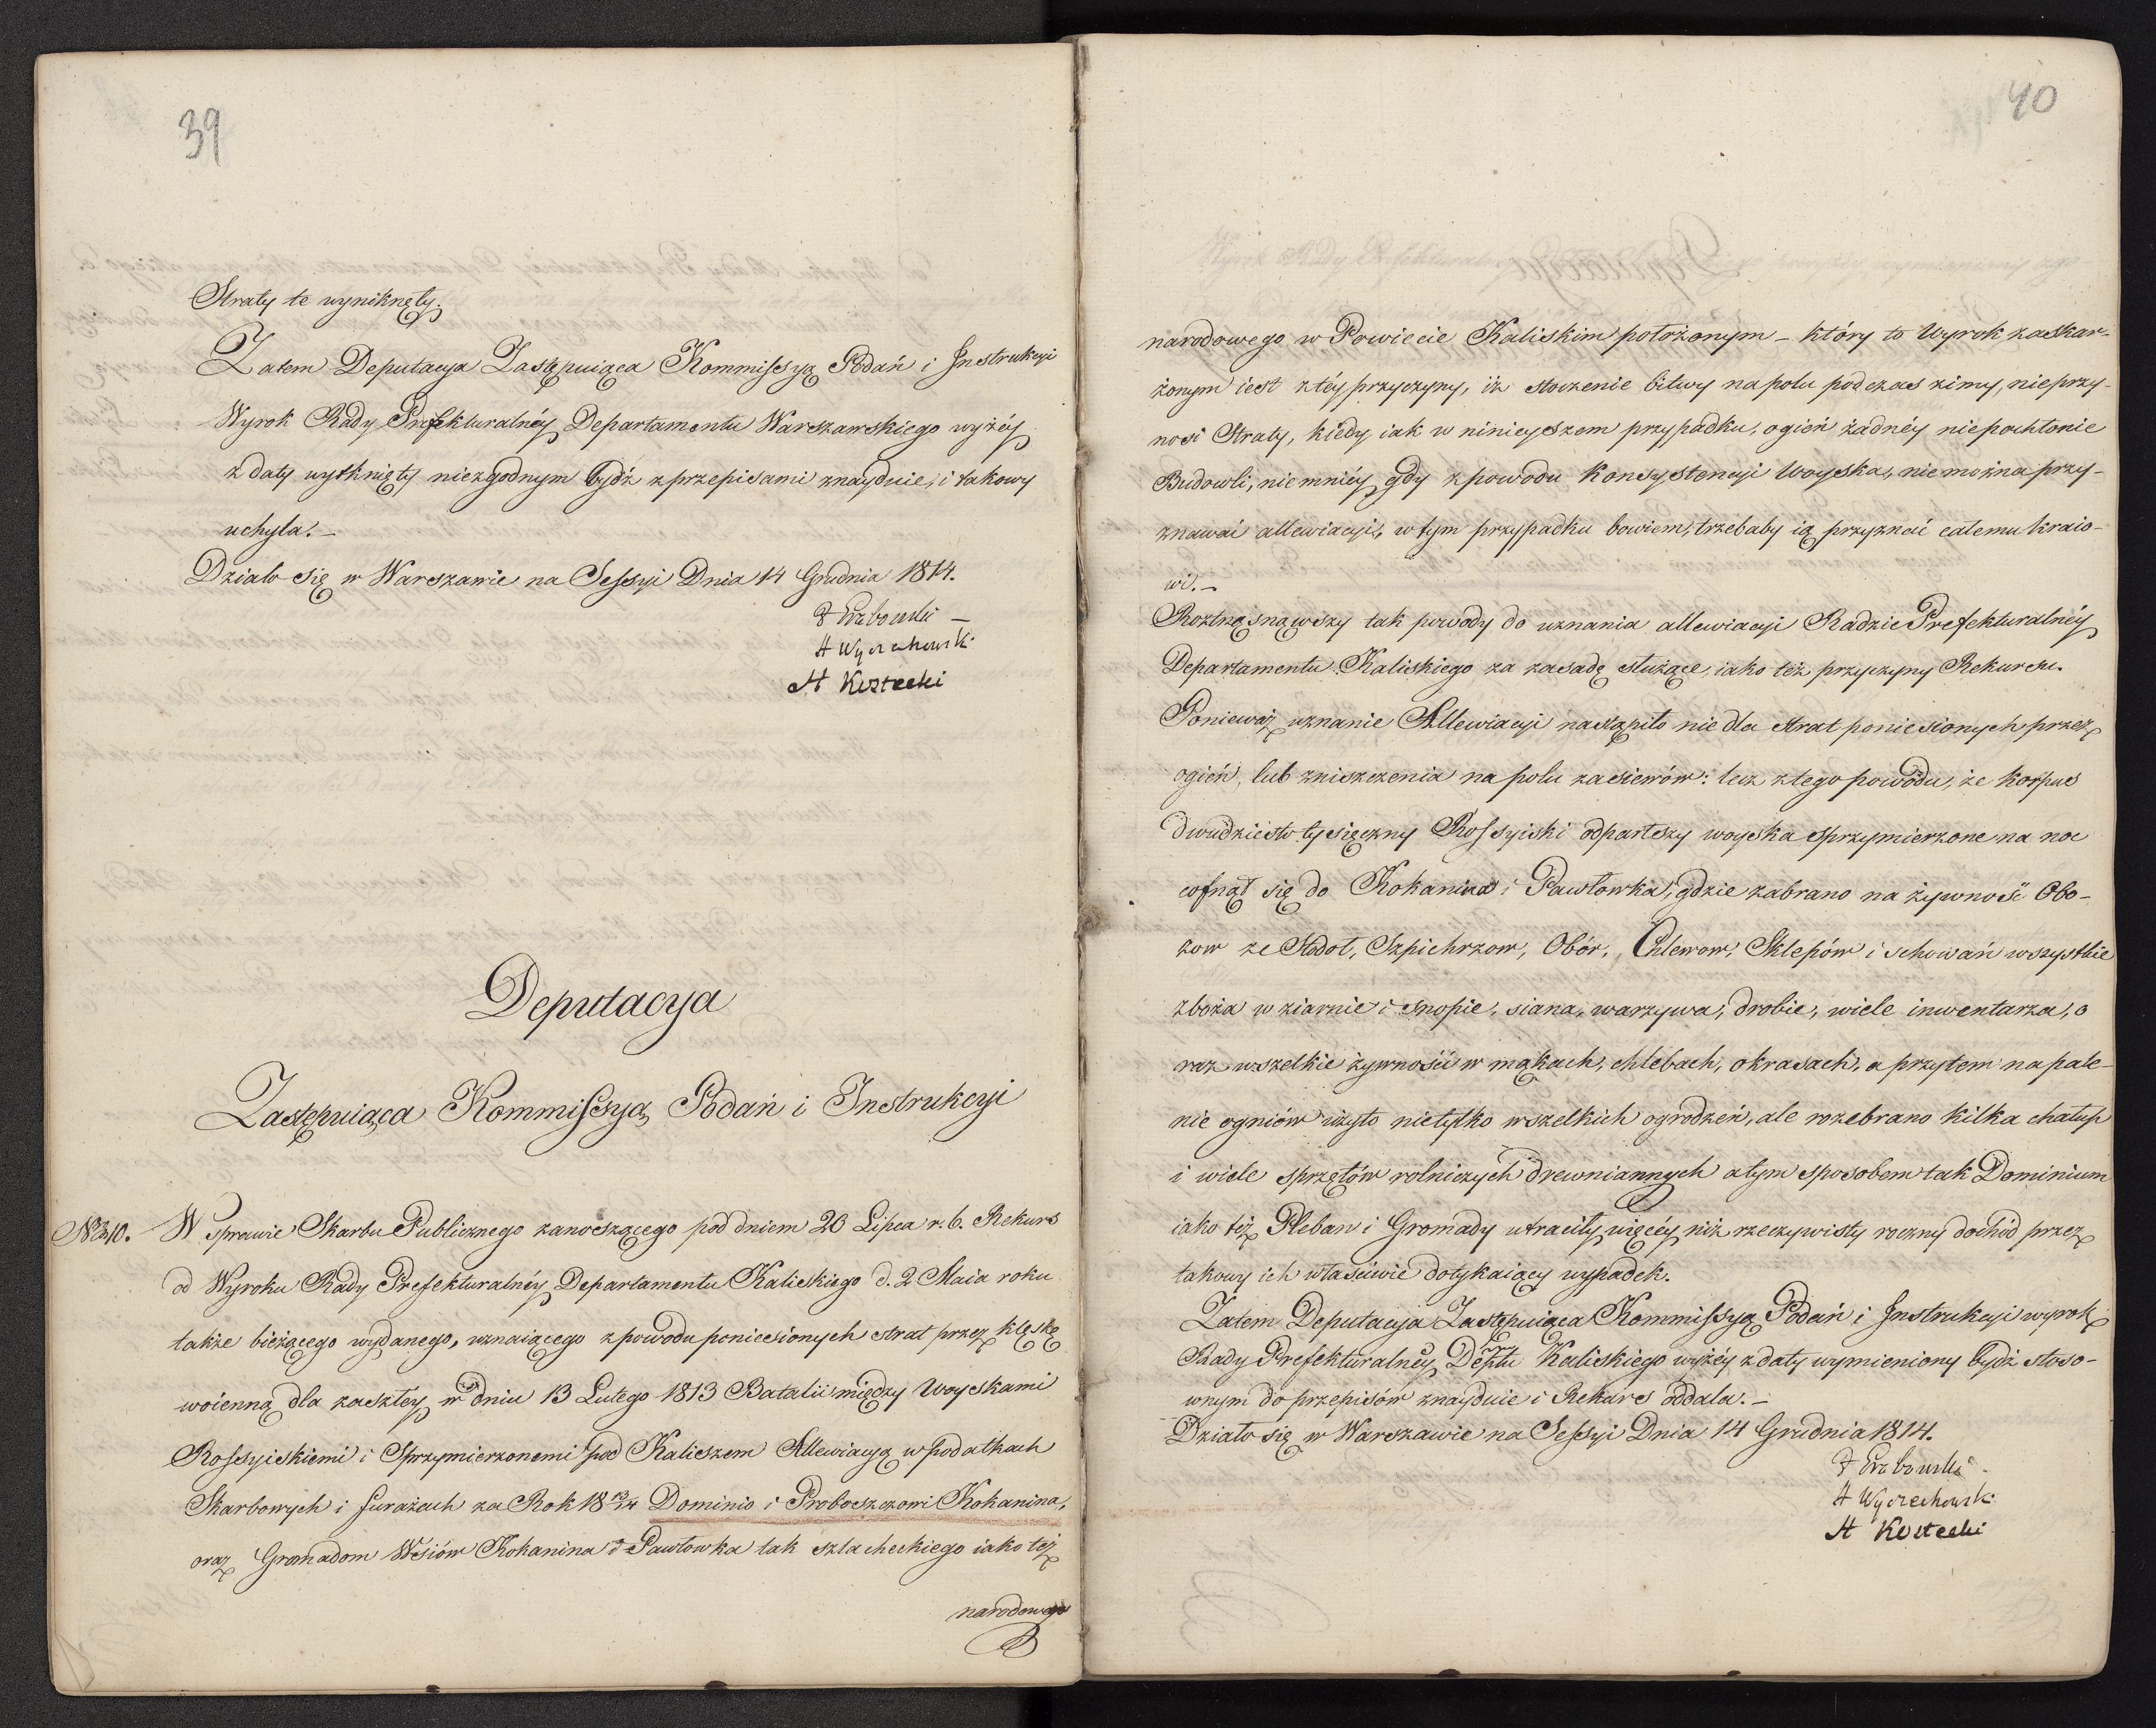 39
Straty te wyniknęły.
Zatem Deputacya Zastępuiąca Kommissyą Podań i Instrukcyi
Wyrok Rady Prefekturalnéy Departamentu Warszawskiego wyżéy
z daty wytknięty niezgodnym bydź z przepisami znayduie, i takowy
uchyla. –
Działo się w Warszawie na Sessyi Dnia 14 Grudnia 1814.
A Wyczechowski
A Kostecki
Deputacya
Zastępuiąca Kommissyą Podań i Instrukcyi
No 210. W sprawie Skarbu Publicznego zanoszącego pod dniem 20 Lipca r. b. Rekurs
od Wyroku Rady Prefekturalnéy Departamentu Kaliskiego d. 2 Maia roku
także bieżącego wydanego, uznaiącego z powodu poniesionych strat przez klęskę
woienną dla zaszłey w dniu 13 Lutego 1813 Batalii między Woyskami
Rossyiskiemi i Sprzymierzonemi pod Kaliszem Allewiacyą w podatkach
Skarbowych i furażach za Rok 18 13/14 Dominio i Proboszczowi Kokanina,
oraz Gromadom Wsiów Kokanina i Pawłowka tak szlacheckiego iako też
narodowego
40
narodowego w Powiecie Kaliskim położonym – który to Wyrok zaskar-
żonym iest z téy przyczyny, iż stoczenie bitwy na polu podczas zimy, nieprzy-
nosi Straty, kiedy iak w ninieyszem przypadku, ogień żadnéy niepochłonie
Budowli, niemniéy gdy z powodu Konsystencyi Woyska, nie można przy-
znawać allewiacyi, w tym przypadku bowiem, trzebaby ią przyznać całemu kraio-
wi. –
Roztrząsnąwszy tak powody do uznania allewiacyi Radzie Prefekturalnéy
Departamentu Kaliskiego za zasadę służące, iako też przyczyny Rekursu.
Ponieważ uznanie Allewiacyi nastąpiło nie dla strat poniesionych przez
ogień, lub zniszczenia na polu zasiewów: lecz z tego powodu, że korpus
dwudziesto tysięczny Rossyiski odparłszy woyska sprzymierzone na noc
cofnął się do Kokanina i Pawłowka, gdzie zabrano na żywność Obo-
zow ze Stodoł, Szpichrzow, Obór, Chlewow, Sklepów i schowań wszystkie
zboża w ziarnie i snopie, siana, warzywa, drobie, wiele inwentarza, o
raz wszelkie żywności w mąkach, chlebach, okrasach, a przytem na pale-
nie ogniów użyto nietylko wszelkich ogrodzeń, ale rozebrano kilka chałup
i wiele sprzętów rolniczych drewniannych a tym sposobem tak Dominium
iako też Pleban i Gromady utraciły więcéy niż rzeczywisty roczny dochód przez
takowy ich właściwie dotykaiący wypadek.
Zatem Deputacya Zastępuiąca Kommissyą Podań i Instrukcyi wyrok
Rady Prefekturalnéy Deptu Kaliskiego wyżéy z daty wymieniony bydź stoso-
wnym do przepisów znayduie i Rekurs oddala. –
Działo się w Warszawie na Sessyi Dnia 14 Grudnia 1814.
A Wyczechowski
A Kostecki